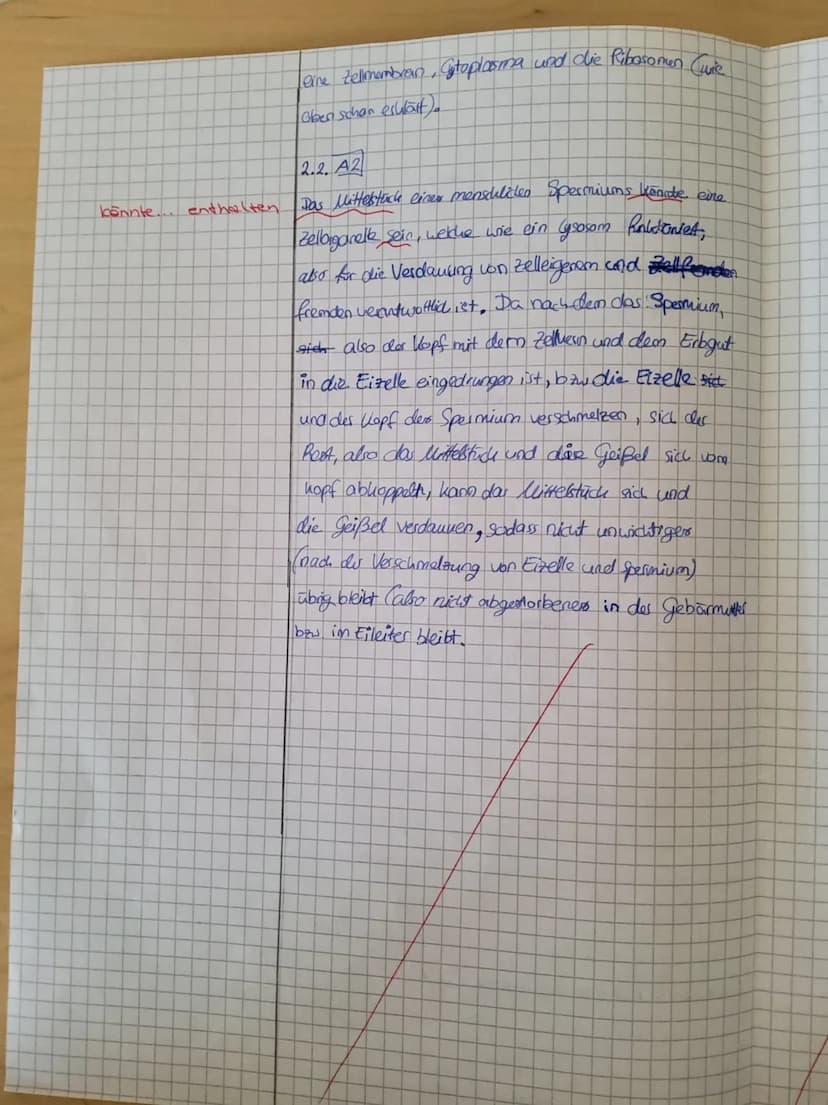 eine Zellmembran, Cytoplasma und die Ribosomen (wie
oben schon erklärt).
2.2. A2
könnte... enthalten
Das Mittelstück eines menschlichen Spermiums könnte eine
Zellorganelle sein, welche wie ein Lysosom funktioniert,
also für die Verdauung von zelleigenem und Zellfremden
fremden verantwortlich ist. Da nachdem das Spermium,
sich also der Kopf mit dem Zellkern und dem Erbgut
in die Eizelle eingedrungen ist, bzw die Eizelle sich
und der Kopf des Spermium verschmelzen, sich der
Rest, also das Mittelstück und die Geißel sich vom
Kopf abkoppeln, kann das Mittelstück sich und
die Geißel verdauen, sodass nicht unwichtiges
(nach der Verschmelzung von Eizelle und Spermium)
übrig bleibt (also nichts abgestorbenes in der Gebärmutter
bzw im Eileiter bleibt.